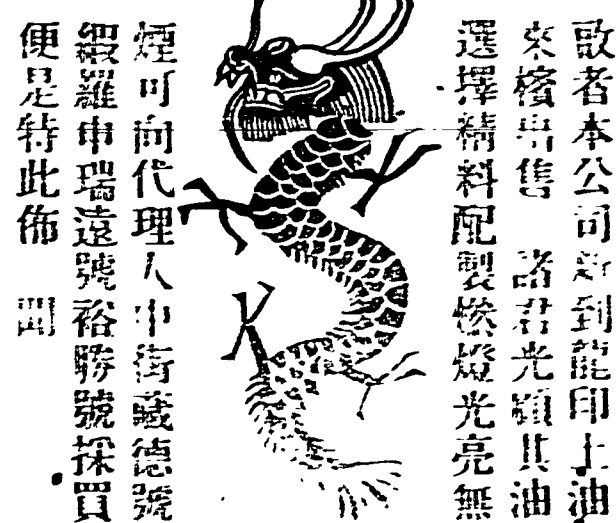 啟者本公司新到龍印上油
來檳出售 諸君光顧其油
選擇精料配製燃燈光亮無
煙可向代理人中街藏德號
緞羅申瑞遠號裕勝號採買
便是特此佈 聞